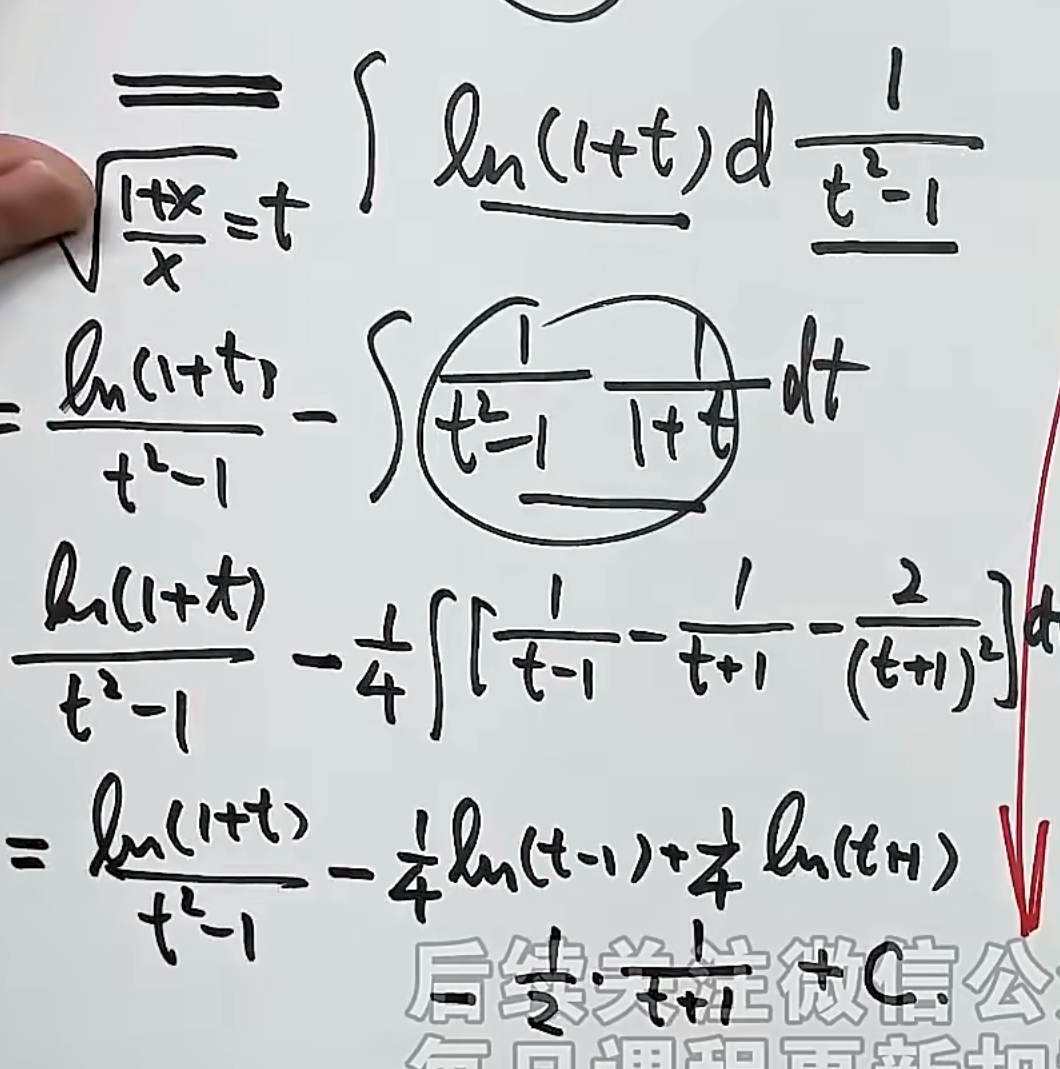 ═ ∫ ln(1+t) d 1/(t²-1)
√((1+x)/x) = t
= ln(1+t)/(t²-1) - ∫ 1/(t²-1) 1/(1+t) dt
ln(1+t)/(t²-1) - 1/4 ∫ [1/(t-1) - 1/(t+1) - 2/(t+1)²] d
= ln(1+t)/(t²-1) - 1/4 ln(t-1) + 1/4 ln(t+1)
- 1/2 · 1/(t+1) + C.
后续关注微信公
每日课程更新